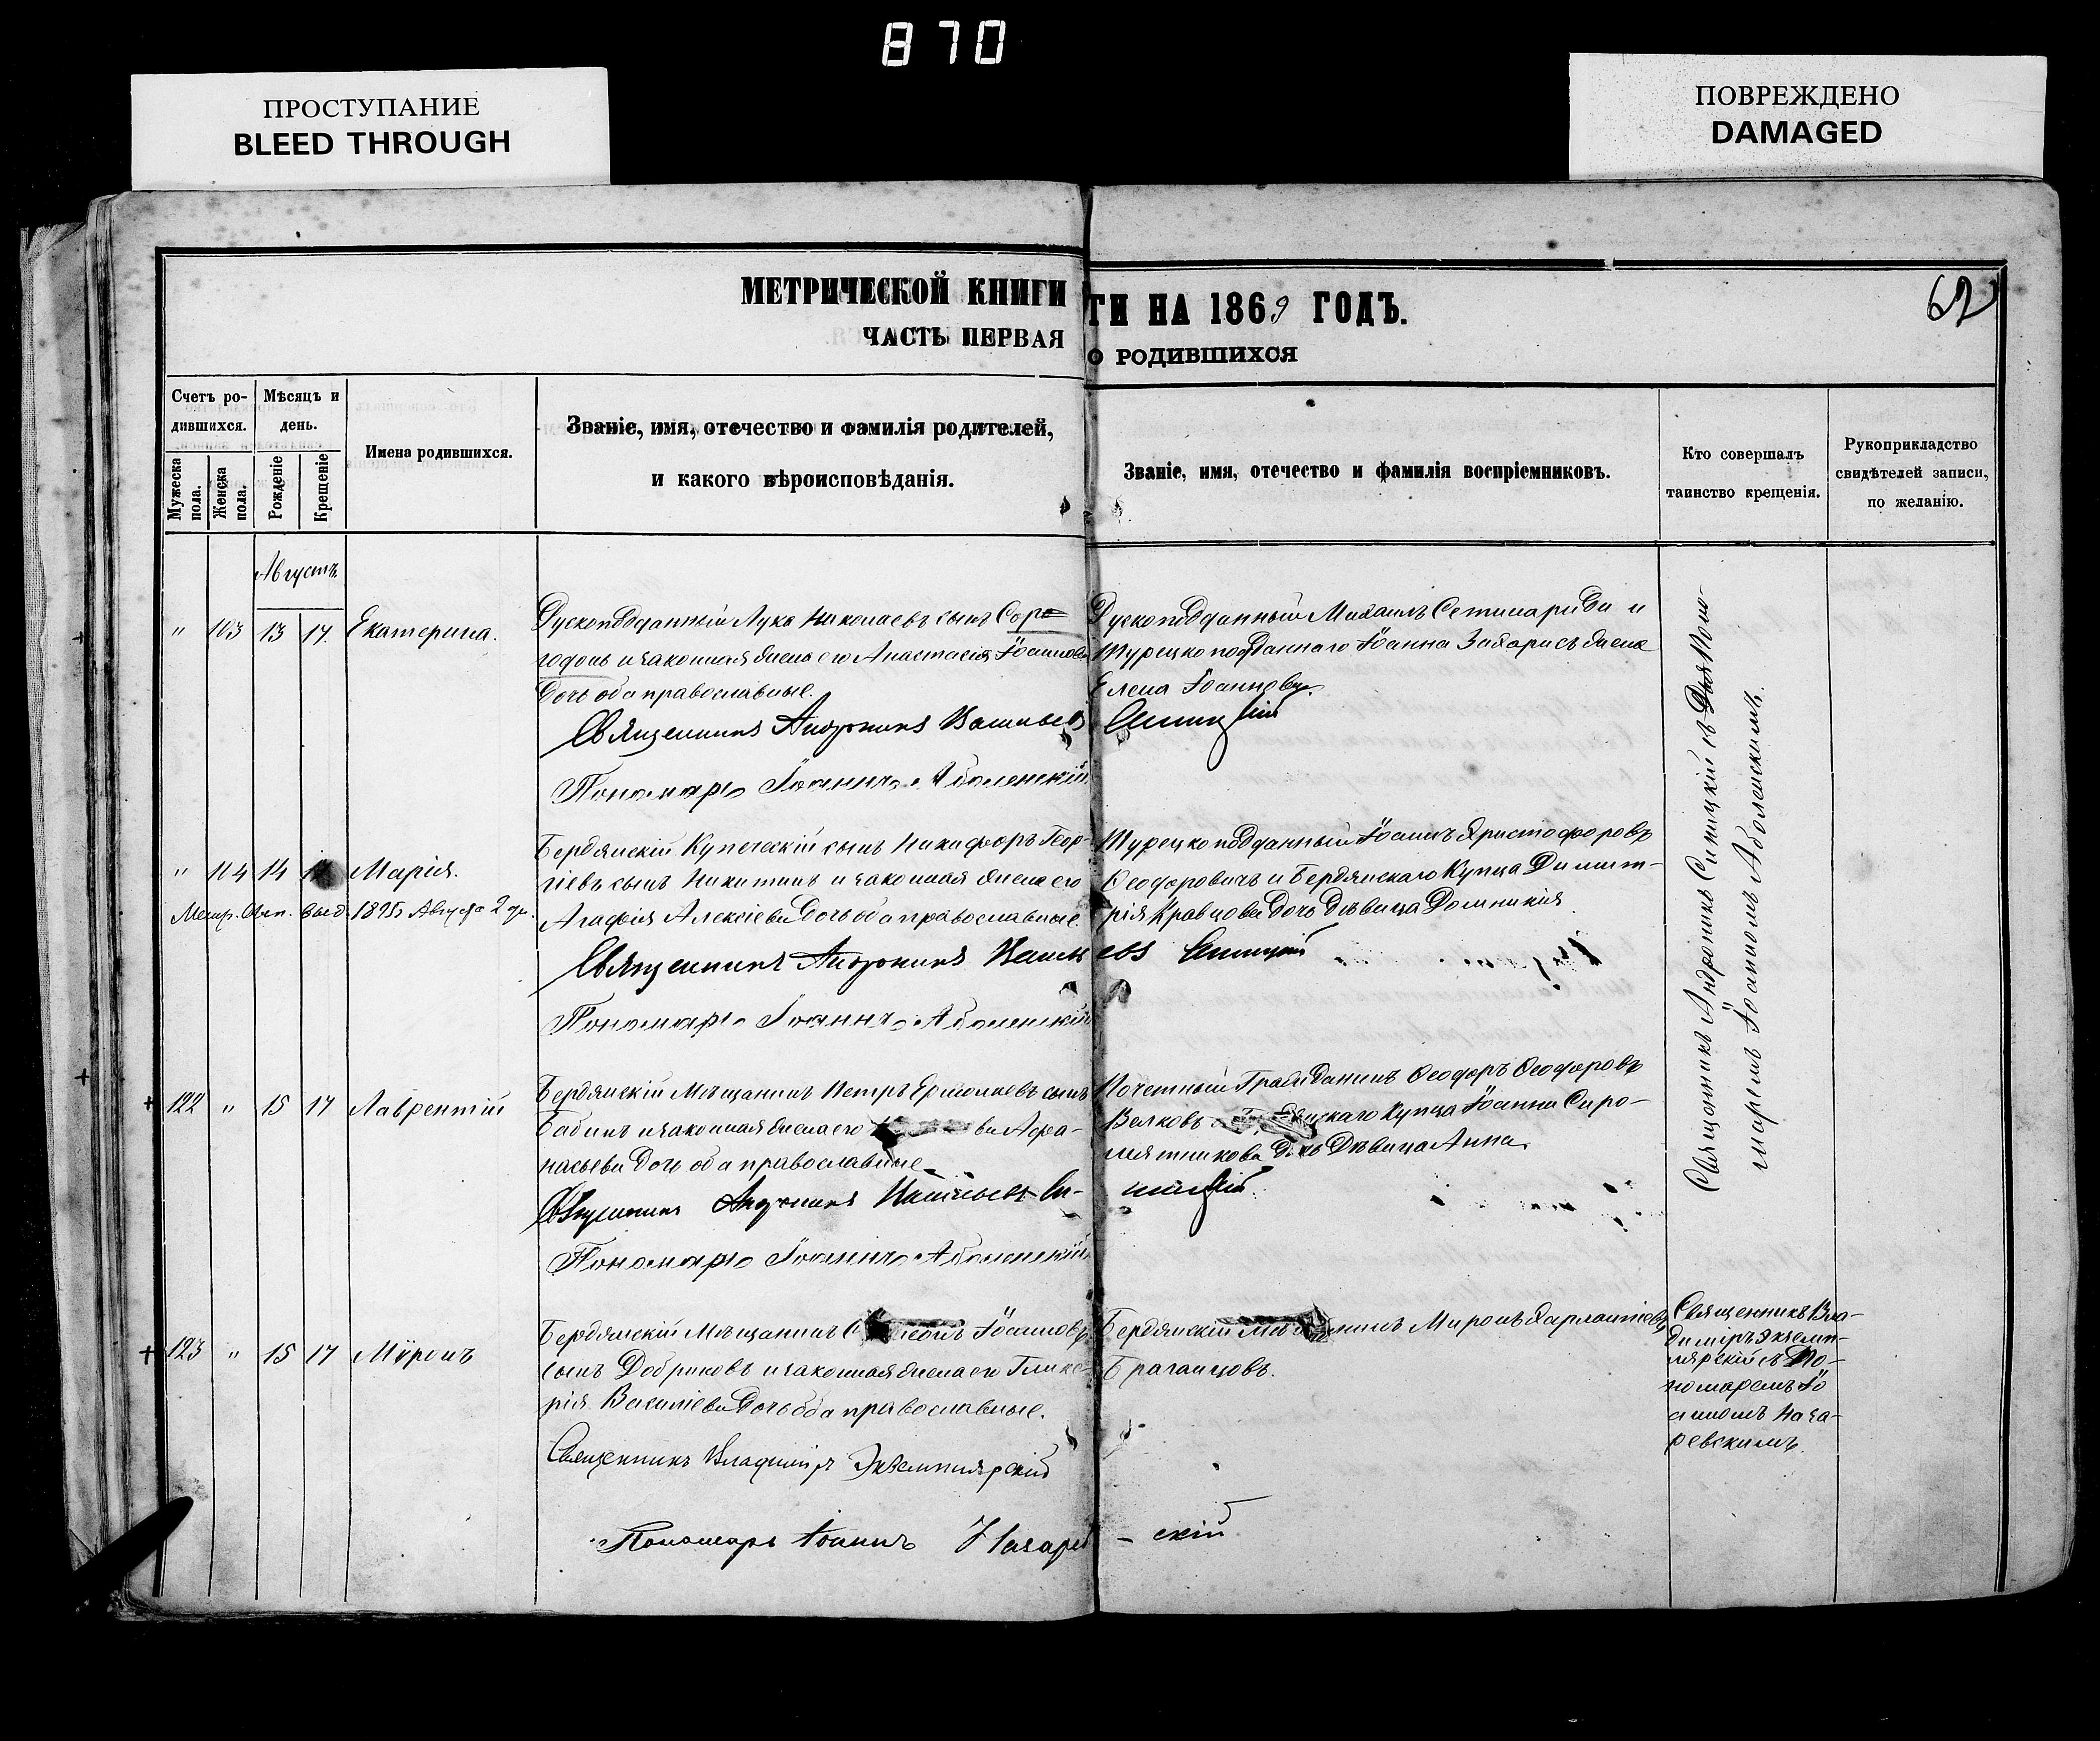 870
ПРОСТУПАНИЕ
BLEED THROUGH
ПОВРЕЖДЕНО
DAMAGED
МЕТРИЧЕСКОЙ КНИГИ
ЧАСТЬ ПЕРВАЯ
ГИ НА 1869 ГОДЪ.
О РОДИВШИХСЯ
62
Счетъ ро-
дившихся.
Мужеска пола.
Женска пола.
Мѣсяцъ и
день.
Рожденіе
Крещеніе
Имена родившихся.
Званіе, имя, отечество и фамилія родителей,
и какого вѣроисповѣданія.
Званіе, имя, отечество и фамилія воспріемниковъ.
Кто совершалъ
таинство крещенія.
Рукоприкладство
свидѣтелей записи,
по желанію.
Августъ
" 103 13 17. Екатерина.
Рускоподданный Лука Николаевъ сынъ
и законная жена его Анастасія Іоаннова
дочь оба православные.
Священникъ Андроникъ Васильевъ
Пономарь Іоаннъ Аболенскій
Рускоподданный Михаилъ и
Турецкоподданнаго Іоанна Захарисъ жена
Елена Іоаннова.
Синицкій
" 104 14 Марія.
Метр. Свид. выд 1895 Августа 2 дн.
Бердянскій Купеческій сынъ Никифоръ Геор-
гіевъ сынъ Никитинъ и законная жена его
Агафія Алексіева дочь оба православные.
Священникъ Андроникъ Василь
Пономарь Іоаннъ Аболенскій
Турецкоподданный Іоаннъ Христофоровъ
Ѳеодоровичъ и Бердянскаго Купца Димит-
рія Кравцова дочь Дѣвица Домникія
евъ Синицкій
122 " 15 17 Лаврентій
Бердянскій Мѣщанинъ Петръ Ермолаевъ сынъ
Бабинъ и законная жена его ва Афа-
насьева дочь оба православные.
Священникъ Андроникъ Васильевъ Си-
Пономарь Іоаннъ Аболенскій
Почетный Гражданинъ Ѳеодоръ Ѳеодоровъ
Велковъ Купца Іоанна Сиро-
мятникова дочь Дѣвица Анна.
ницкій
Священникъ Андроникъ Синицкій съ Поно-
маремъ Іоанномъ Аболенскимъ.
123 " 15 17 Мѵронъ
Бердянскій Мѣщанинъ Іоанновъ
сынъ Добриковъ и законная жена его Глике-
рія Василіева дочь оба православные.
Священникъ Владиміръ Экземплярскій
Пономарь Іоаннъ Назарев
Бердянскій Мѣщанинъ Миронъ Харлампіевъ
Браганцовъ.
- скій
Священникъ Вла-
диміръ Экземп-
лярскій съ По-
номаремъ Іо
анномъ Наза-
ревскимъ.